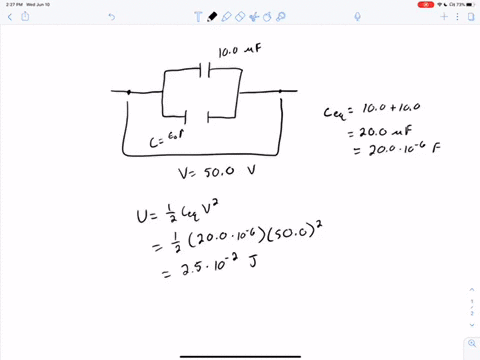 2:27 PM Wed Jun 16
73%
10.0 μF
V = 50.0 V
Ceq = 10.0 + 10.0
= 20.0 μF
= 20.0 · 10⁻⁶ F
U = 1/2 Ceq V²
= 1/2 (20.0 · 10⁻⁶)(50.0)²
= 2.5 · 10⁻² J
1
2